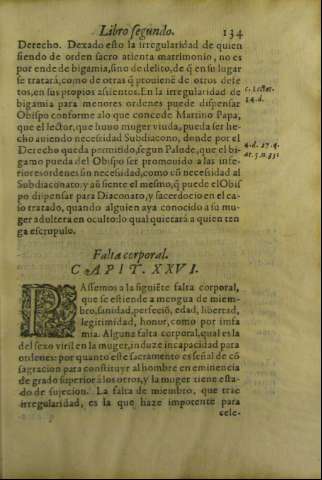 Libro segundo. 134
Derecho. Dexado esto la irregularidad de quien
siendo de orden sacro atienta matrimonio, no es
por ende de bigamia, sino de delito, de q̃ en su lugar
se tratará, como de otras q̃ prouienẽ de otros defe
tos, en sus propios assientos. En la irregularidad de
bigamia para menores ordenes puede dispensar
Obispo conforme alo que concede Martino Papa,
que el lector, que huuo muger viuda, pueda ser he-
cho auiendo necessidad Subdiacono, donde por el
Derecho queda permitido, segun Palude, que el bi-
gamo pueda del Obispo ser promouido a las infe-
riores ordenes sin necessidad, como cõ necessidad al
Subdiaconato: y aũ siente el mesmo, q̃ puede el Obis
po dispensar para Diaconato, y sacerdocio en el ca-
so tratado, quando alguien aya conocido a su mu-
ger adoltera en oculto: lo qual quietará a quien ten
ga escrupulo.
c. Lector.
34. d.
4. d. 27. q.
Falta corporal.
CAPIT. XXVI.
PAssemos a la siguiẽte falta corporal,
que se estiende a mengua de miem-
bro, sanidad, perfeciõ, edad, libertad,
legitimidad, honor, como por infa
mia. Alguna falta corporal, qual es la
del sexo viril en la muger, induze incapacidad para
ordenes: por quanto este sacramento es señal de cõ
sagracion para constituyr al hombre en eminencia
de grado superior a los otros, y la muger tiene esta-
do de sujecion. La falta de miembro, que trae
irregularidad, es la que haze impotente para
cele-